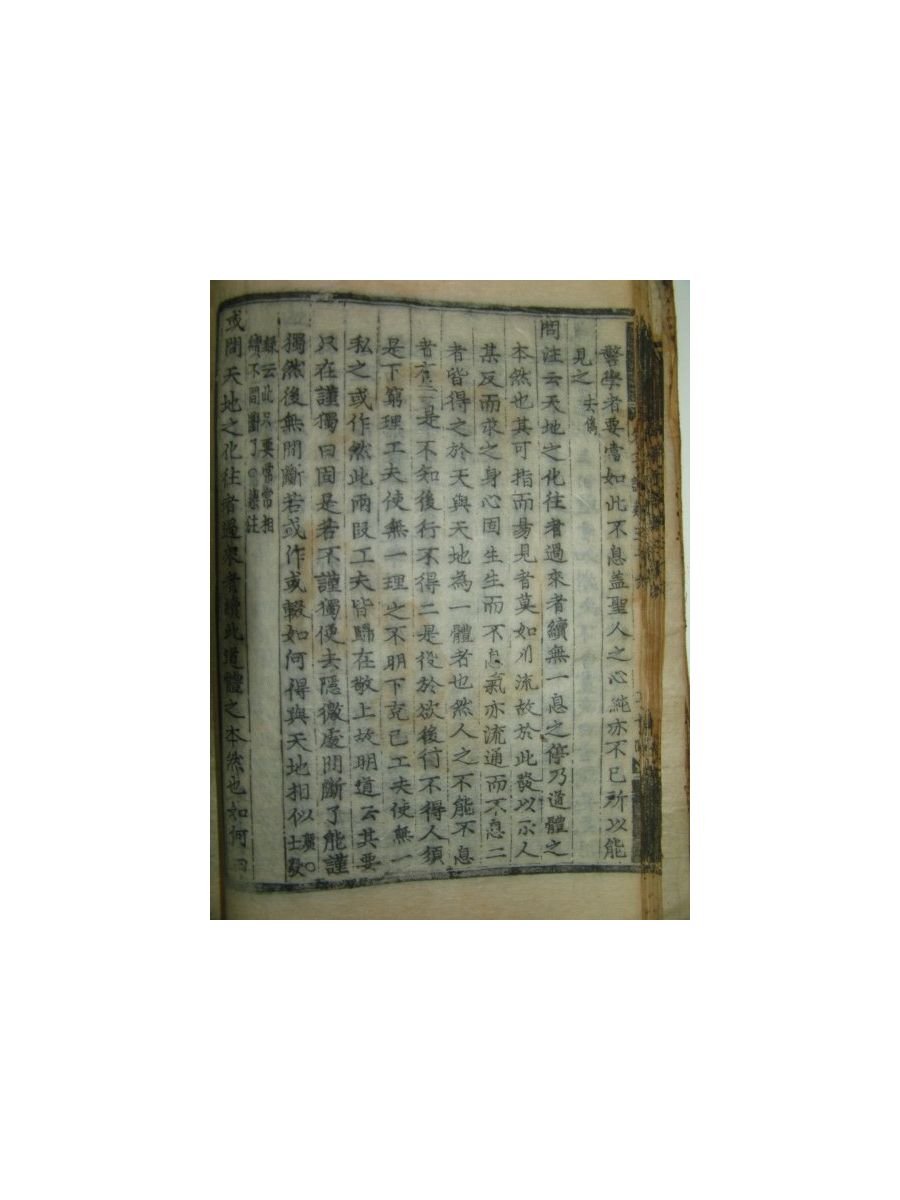 警學者要當如此不息蓋聖人之心純亦不已所以能
見之 去僞
問注云天地之化往者過來者續無一息之停乃道體之
本然也其可指而易見者莫如川流故於此發以示人
某反而求之身心固生生而不息氣亦流通而不息二
者皆得之於天與天地為一體者也然人之不能不息
者有二一是不知後行不得二是役於欲後行不得人須
是下窮理工夫使無一理之不明下克己工夫使無一
私之或作然此兩段工夫皆歸在敬上故明道云其要
只在謹獨曰固是若不謹獨便去隱微處間斷了能謹
獨然後無間斷若或作或輟如何得與天地相似 廣○士毅
錄云此只要常常相
續不間斷了○集注
或問天地之化往者過來者續此道體之本然也如何曰